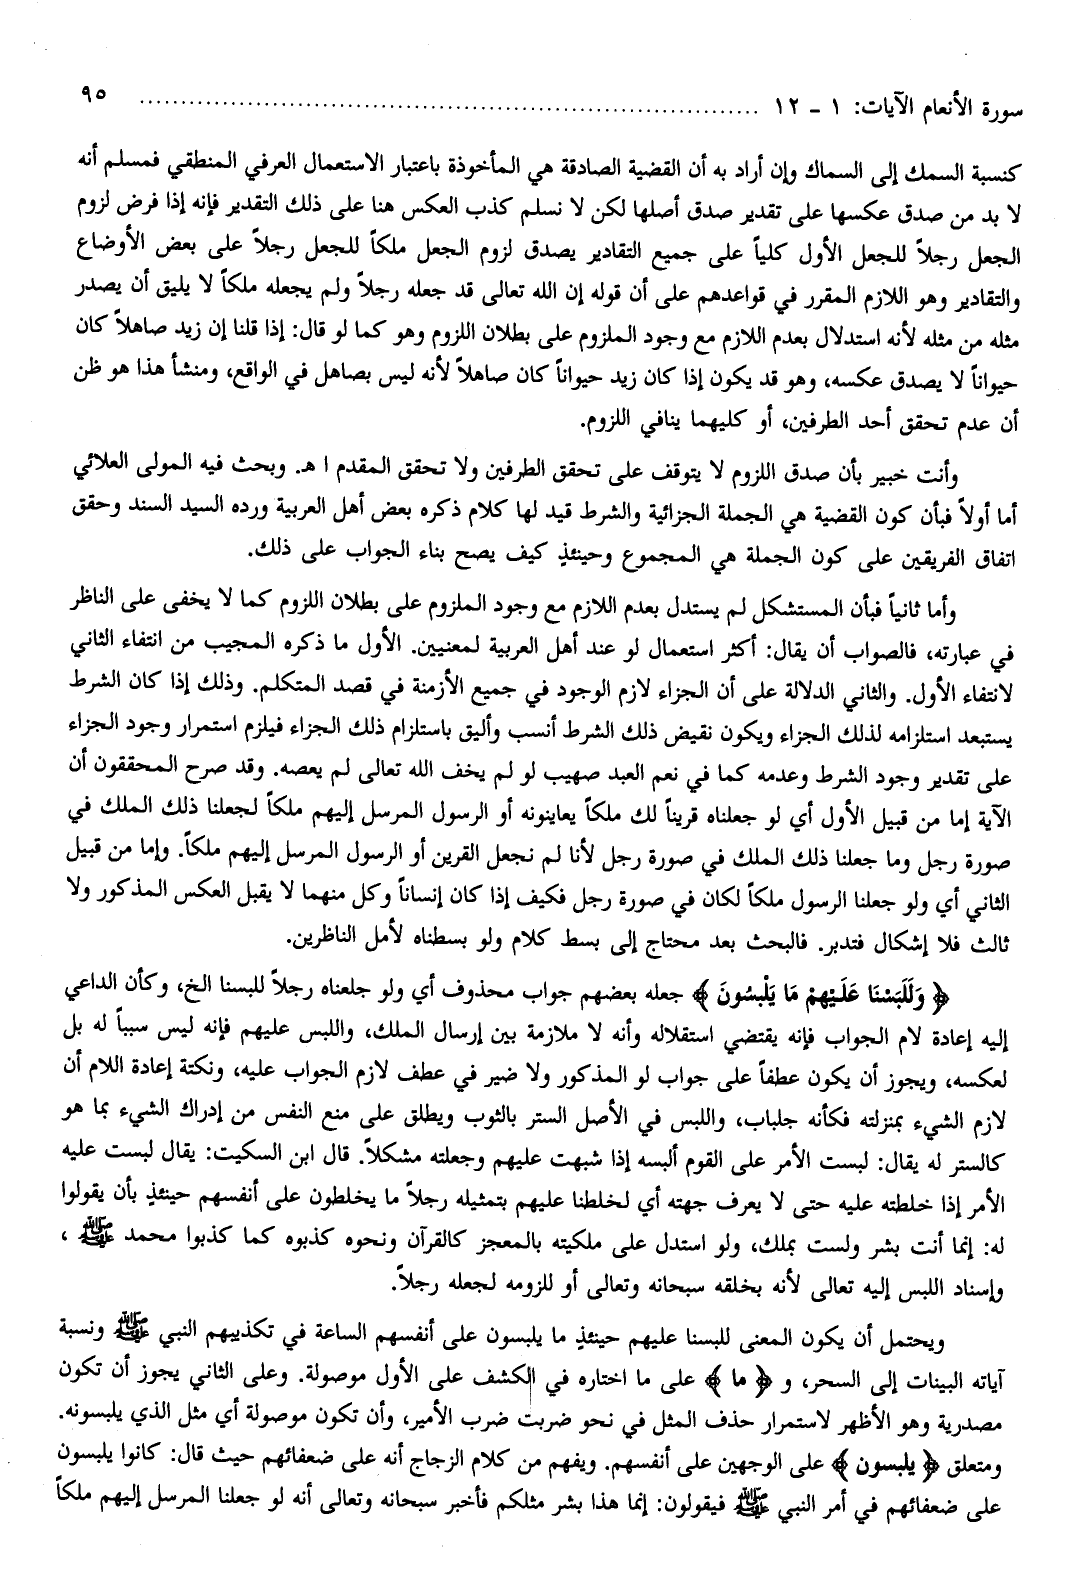 سورة الأنعام الآيات: ١ - ١٢ ........................................................................ ٩٥
كنسبة السمك إلى السماك وإن أراد به أن القضية الصادقة هي المأخوذة باعتبار الاستعمال العرفي المنطقي فمسلم أنه
لا بد من صدق عكسها على تقدير صدق أصلها لكن لا نسلم كذب العكس هنا على ذلك التقدير فإنه إذا فرض لزوم
الجعل رجلاً للجعل الأول كلياً على جميع التقادير يصدق لزوم الجعل ملكاً للجعل رجلاً على بعض الأوضاع
والتقادير وهو اللازم المقرر في قواعدهم على أن قوله إن الله تعالى قد جعله رجلاً ولم يجعله ملكاً لا يليق أن يصدر
مثله من مثله لأنه استدلال بعدم اللازم مع وجود الملزوم على بطلان اللزوم وهو كما لو قال: إذا قلنا إن زيد صاهلاً كان
حيواناً لا يصدق عكسه، وهو قد يكون إذا كان زيد حيواناً كان صاهلاً لأنه ليس بصاهل في الواقع، ومنشأ هذا هو ظن
أن عدم تحقق أحد الطرفين، أو كليهما ينافي اللزوم.
وأنت خبير بأن صدق اللزوم لا يتوقف على تحقق الطرفين ولا تحقق المقدم ا هـ. وبحث فيه المولى العلائي
أما أولاً فبأن كون القضية هي الجملة الجزائية والشرط قيد لها كلام ذكره بعض أهل العربية ورده السيد السند وحقق
اتفاق الفريقين على كون الجملة هي المجموع وحينئذٍ كيف يصح بناء الجواب على ذلك.
وأما ثانياً فبأن المستشكل لم يستدل بعدم اللازم مع وجود الملزوم على بطلان اللزوم كما لا يخفى على الناظر
في عبارته، فالصواب أن يقال: أكثر استعمال لو عند أهل العربية لمعنيين. الأول ما ذكره المجيب من انتفاء الثاني
لانتفاء الأول. والثاني الدلالة على أن الجزاء لازم الوجود في جميع الأزمنة في قصد المتكلم. وذلك إذا كان الشرط
يستبعد استلزامه لذلك الجزاء ويكون نقيض ذلك الشرط أنسب وأليق باستلزام ذلك الجزاء فيلزم استمرار وجود الجزاء
على تقدير وجود الشرط وعدمه كما في نعم العبد صهيب لو لم يخف الله تعالى لم يعصه. وقد صرح المحققون أن
الآية إما من قبيل الأول أي لو جعلناه قريناً لك ملكاً يعاينونه أو الرسول المرسل إليهم ملكاً لجعلنا ذلك الملك في
صورة رجل وما جعلنا ذلك الملك في صورة رجل لأنا لم نجعل القرين أو الرسول المرسل إليهم ملكاً. وإما من قبيل
الثاني أي ولو جعلنا الرسول ملكاً لكان في صورة رجل فكيف إذا كان إنساناً وكل منهما لا يقبل العكس المذكور ولا
ثالث فلا إشكال فتدبر. فالبحث بعد محتاج إلى بسط كلام ولو بسطناه لأمل الناظرين.
﴿ وَلَلَبَسْنَا عَلَيْهِمْ مَا يَلْبِسُونَ ﴾ جعله بعضهم جواب محذوف أي ولو جلعناه رجلاً للبسنا الخ، وكأن الداعي
إليه إعادة لام الجواب فإنه يقتضي استقلاله وأنه لا ملازمة بين إرسال الملك، واللبس عليهم فإنه ليس سبباً له بل
لعكسه، ويجوز أن يكون عطفاً على جواب لو المذكور ولا ضير في عطف لازم الجواب عليه، ونكتة إعادة اللام أن
لازم الشيء بمنزلته فكأنه جلباب، واللبس في الأصل الستر بالثوب ويطلق على منع النفس من إدراك الشيء بما هو
كالستر له يقال: لبست الأمر على القوم ألبسه إذا شبهت عليهم وجعلته مشكلاً. قال ابن السكيت: يقال لبست عليه
الأمر إذا خلطته عليه حتى لا يعرف جهته أي لخلطنا عليهم بتمثيله رجلاً ما يخلطون على أنفسهم حينئذٍ بأن يقولوا
له: إنما أنت بشر ولست بملك، ولو استدل على ملكيته بالمعجز كالقرآن ونحوه كذبوه كما كذبوا محمد ﷺ ،
وإسناد اللبس إليه تعالى لأنه بخلقه سبحانه وتعالى أو للزومه لجعله رجلاً.
ويحتمل أن يكون المعنى للبسنا عليهم حينئذٍ ما يلبسون على أنفسهم الساعة في تكذيبهم النبي ﷺ ونسبة
آياته البينات إلى السحر، و ﴿ ما ﴾ على ما اختاره في الكشف على الأول موصولة. وعلى الثاني يجوز أن تكون
مصدرية وهو الأظهر لاستمرار حذف المثل في نحو ضربت ضرب الأمير، وأن تكون موصولة أي مثل الذي يلبسونه.
ومتعلق ﴿ يلبسون ﴾ على الوجهين على أنفسهم. ويفهم من كلام الزجاج أنه على ضعفائهم حيث قال: كانوا يلبسون
على ضعفائهم في أمر النبي ﷺ فيقولون: إنما هذا بشر مثلكم فأخبر سبحانه وتعالى أنه لو جعلنا المرسل إليهم ملكاً